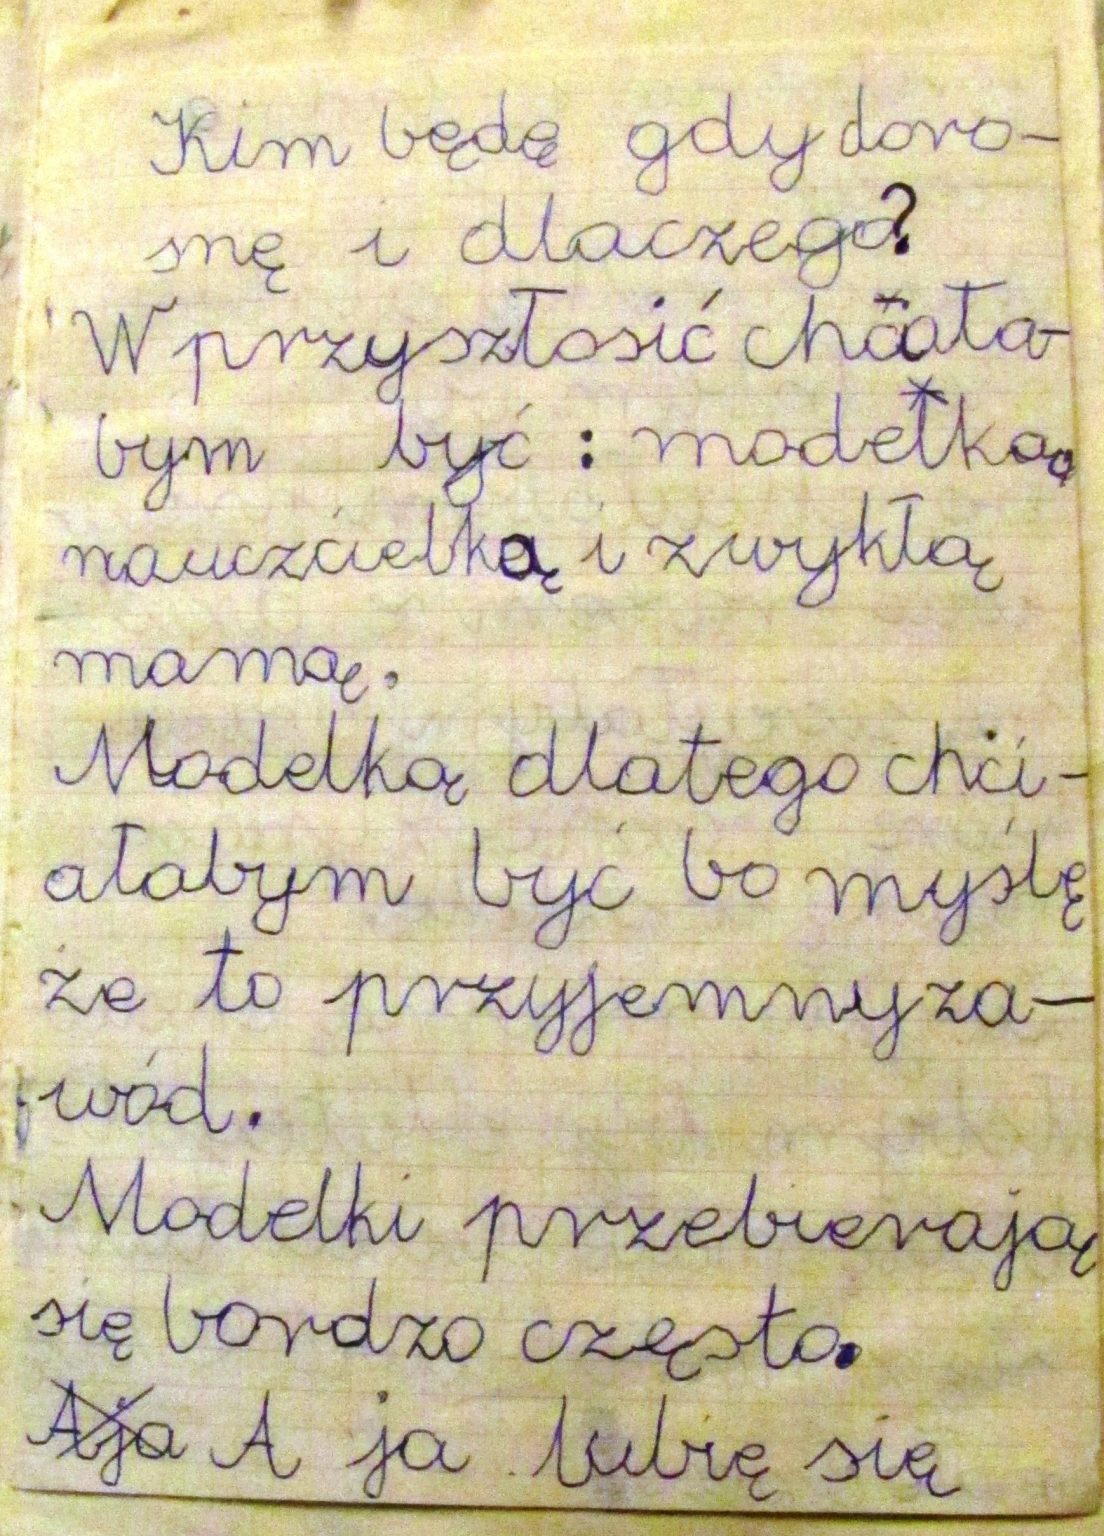 Kim będę gdy doro-
snę i dlaczego?
W przyszłosić chciała-
bym być : modełką
nauczcielką i zwykłą
mamą.
Modelką dlatego chći-
ałabym być bo myślę
że to przyjemny za-
wód.
Modelki przebierają
się bardzo często.
Aja A ja lubię się